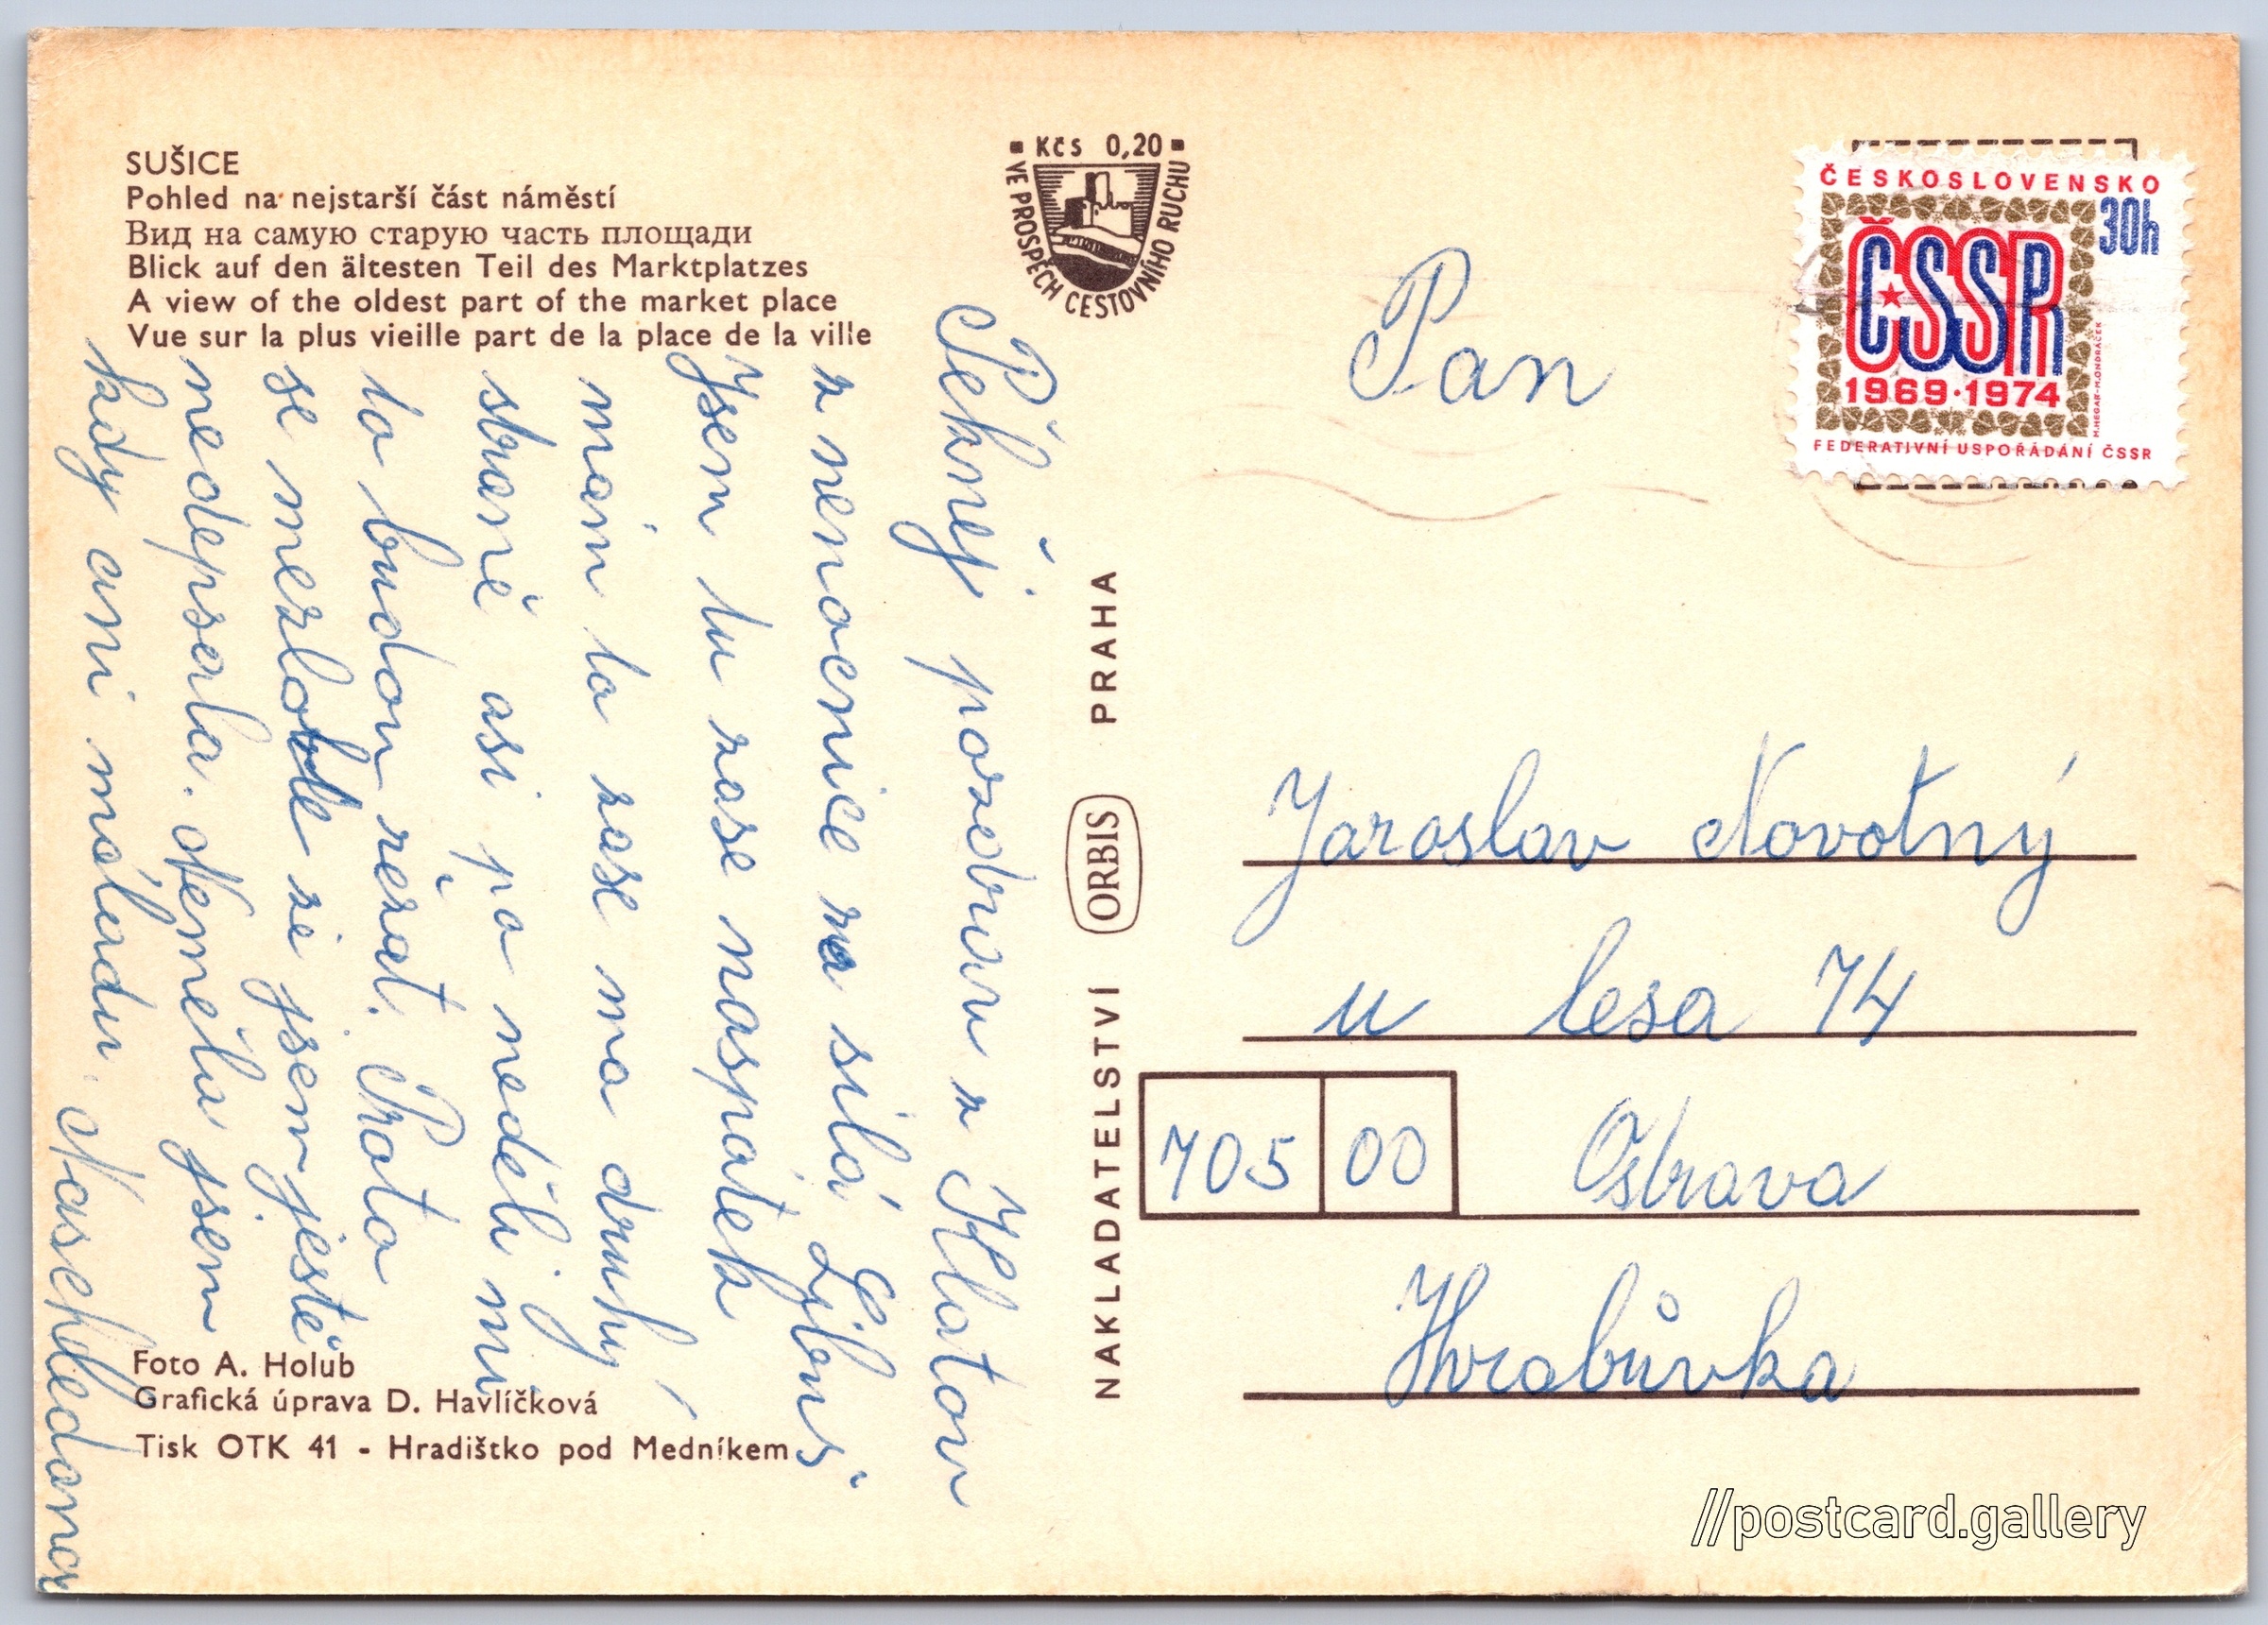 SUŠICE
Pohled na nejstarší část náměstí
Вид на самую старую часть площади
Blick auf den ältesten Teil des Marktplatzes
A view of the oldest part of the market place
Vue sur la plus vieille part de la place de la ville
Pěknej pozdrav z Klatov
z nemocnice na silá
Jsem tu zase naspátek
mám to zase na druhý
straně asi po neděli mi
to budou řezat. Proto
se nezlobte že jsem ještě
neodepsala. Neměla jsem
kdy ani náladu.
Foto A. Holub
Grafická úprava D. Havlíčková
Tisk OTK 41 - Hradištko pod Medníkem
Kčs 0,20
VE PROSPĚCH CESTOVNÍHO RUCHU
NAKLADATELSTVÍ ORBIS PRAHA
ČESKOSLOVENSKO
30h
ČSSR
1969·1974
M.HEGAR-M.ONDRÁČEK
FEDERATIVNÍ USPOŘÁDÁNÍ ČSSR
Pan
Jaroslav Novotný
u lesa 74
705 00 Ostrava
Hrabůvka
//postcard.gallery